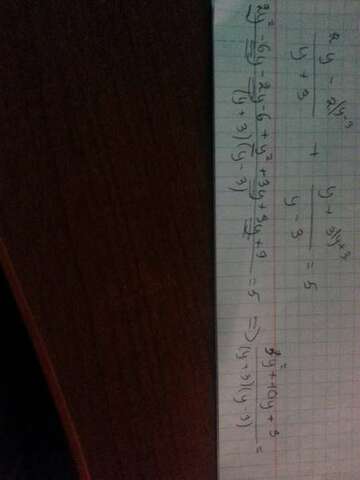 2y - 2/y-3 / y + 3 + y + 3/y+3 / y - 3 = 5
2y² - 6y - 2y - 6 + y² + 3y + 3y + 9 / (y + 3)(y - 3) = 5 => 3y² + 10y + 3 / (y+3)(y-3) =